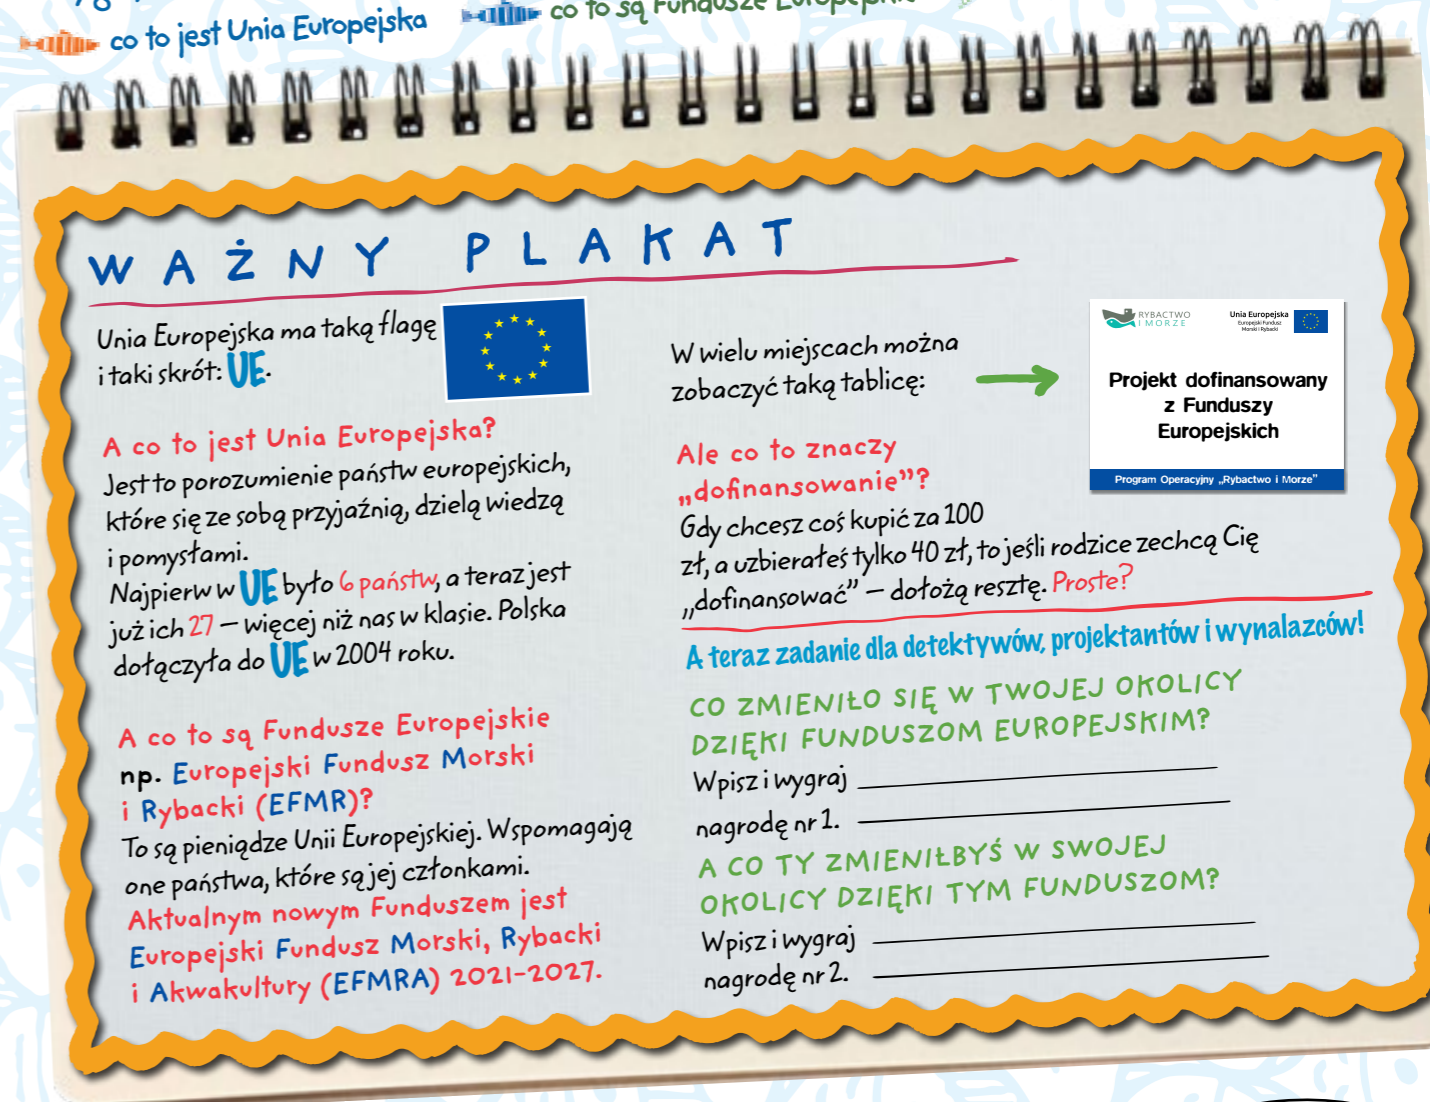 co to jest Unia Europejska
co to są Fundusze
WAŻNY PLAKAT
Unia Europejska ma taką flagę
i taki skrót: UE.
A co to jest Unia Europejska?
Jest to porozumienie państw europejskich,
które się ze sobą przyjaźnią, dzielą wiedzą
i pomysłami.
Najpierw w UE było 6 państw, a teraz jest
już ich 27 – więcej niż nas w klasie. Polska
dołączyła do UE w 2004 roku.
A co to są Fundusze Europejskie
np. Europejski Fundusz Morski
i Rybacki (EFMR)?
To są pieniądze Unii Europejskiej. Wspomagają
one państwa, które są jej członkami.
Aktualnym nowym Funduszem jest
Europejski Fundusz Morski, Rybacki
i Akwakultury (EFMRA) 2021-2027.
W wielu miejscach można
zobaczyć taką tablicę:
RYBACTWO
I MORZE
Unia Europejska
Europejski Fundusz
Morski i Rybacki
Projekt dofinansowany
z Funduszy
Europejskich
Program Operacyjny „Rybactwo i Morze”
Ale co to znaczy
„dofinansowanie”?
Gdy chcesz coś kupić za 100
zł, a uzbierałeś tylko 40 zł, to jeśli rodzice zechcą Cię
„dofinansować” – dołożą resztę. Proste?
A teraz zadanie dla detektywów, projektantów i wynalazców!
CO ZMIENIŁO SIĘ W TWOJEJ OKOLICY
DZIĘKI FUNDUSZOM EUROPEJSKIM?
Wpisz i wygraj
nagrodę nr 1.
A CO TY ZMIENIŁBYŚ W SWOJEJ
OKOLICY DZIĘKI TYM FUNDUSZOM?
Wpisz i wygraj
nagrodę nr 2.